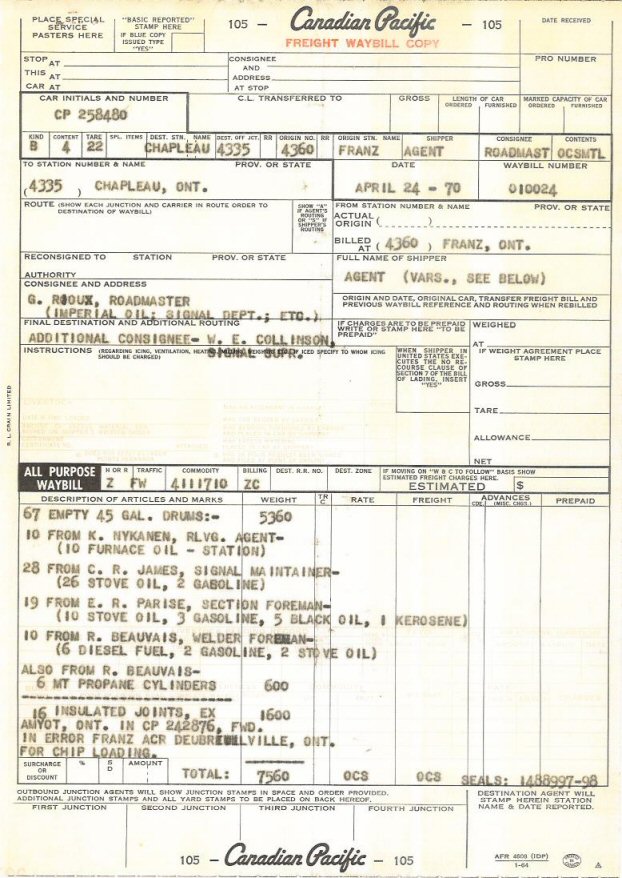 PLACE SPECIAL SERVICE PASTERS HERE
"BASIC REPORTED" STAMP HERE
IF BLUE COPY ISSUED TYPE "YES"
105 - Canadian Pacific - 105
FREIGHT WAYBILL COPY
DATE RECEIVED
STOP AT
THIS AT
CAR AT
CONSIGNEE AND ADDRESS AT STOP
PRO NUMBER
CAR INITIALS AND NUMBER
CP 258480
C.L. TRANSFERRED TO
GROSS
LENGTH OF CAR
ORDERED FURNISHED
MARKED CAPACITY OF CAR
ORDERED FURNISHED
KIND CONTENT TARE SPL. ITEMS DEST. STN. NAME DEST. OFF JCT. RR ORIGIN NO. RR ORIGIN STN. NAME SHIPPER CONSIGNEE CONTENTS
B 4 22 CHAPLEAU 4335 4360 FRANZ AGENT ROADMAST OCSMTL
TO STATION NUMBER & NAME PROV. OR STATE DATE WAYBILL NUMBER
(4335) CHAPLEAU, ONT. APRIL 24 - 70 010024
ROUTE (SHOW EACH JUNCTION AND CARRIER IN ROUTE ORDER TO DESTINATION OF WAYBILL)
SHOW "A" IF AGENT'S ROUTING OR "S" IF SHIPPER'S ROUTING
FROM STATION NUMBER & NAME PROV. OR STATE
ACTUAL ORIGIN ( )
BILLED AT (4360) FRANZ, ONT.
RECONSIGNED TO STATION PROV. OR STATE
AUTHORITY
FULL NAME OF SHIPPER
AGENT (VARS., SEE BELOW)
CONSIGNEE AND ADDRESS
G. RIOUX, ROADMASTER
(IMPERIAL OIL; SIGNAL DEPT.; ETC.)
ORIGIN AND DATE, ORIGINAL CAR, TRANSFER FREIGHT BILL AND PREVIOUS WAYBILL REFERENCE AND ROUTING WHEN REBILLED
FINAL DESTINATION AND ADDITIONAL ROUTING
ADDITIONAL CONSIGNEE- W. E. COLLINSON,
SIGNAL SUPR.
IF CHARGES ARE TO BE PREPAID WRITE OR STAMP HERE "TO BE PREPAID"
WEIGHED
AT
INSTRUCTIONS (REGARDING ICING, VENTILATION, HEATING, MILLING, WEIGHING ETC. IF ICED SPECIFY TO WHOM ICING SHOULD BE CHARGED)
WHEN SHIPPER IN UNITED STATES EXECUTES THE NO RECOURSE CLAUSE OF SECTION 7 OF THE BILL OF LADING, INSERT "YES"
IF WEIGHT AGREEMENT PLACE STAMP HERE
GROSS
TARE
ALLOWANCE
NET
R. L. CRAIN LIMITED
ALL PURPOSE WAYBILL
H OR R TRAFFIC COMMODITY BILLING DEST. R.R. NO. DEST. ZONE
Z FW 4111710 ZC
IF MOVING ON "W & C TO FOLLOW" BASIS SHOW ESTIMATED FREIGHT CHARGES HERE.
ESTIMATED $
DESCRIPTION OF ARTICLES AND MARKS WEIGHT TR C RATE FREIGHT ADVANCES CDE. (MISC. CHGS.) PREPAID
67 EMPTY 45 GAL. DRUMS:- 5360
10 FROM K. NYKANEN, RLVG. AGENT-
(10 FURNACE OIL - STATION)
28 FROM C. R. JAMES, SIGNAL MAINTAINER-
(26 STOVE OIL, 2 GASOLINE)
19 FROM E. R. PARISE, SECTION FOREMAN-
(10 STOVE OIL, 3 GASOLINE, 5 BLACK OIL, 1 KEROSENE)
10 FROM R. BEAUVAIS, WELDER FOREMAN-
(6 DIESEL FUEL, 2 GASOLINE, 2 STOVE OIL)
ALSO FROM R. BEAUVAIS-
6 MT PROPANE CYLINDERS 600
16 INSULATED JOINTS, EX 1600
AMYOT, ONT. IN CP 242876, FWD.
IN ERROR FRANZ ACR DEUBREUILVILLE, ONT.
FOR CHIP LOADING.
SURCHARGE OR DISCOUNT % S D AMOUNT
TOTAL: 7560 OCS OCS SEALS: 1488997-98
OUTBOUND JUNCTION AGENTS WILL SHOW JUNCTION STAMPS IN SPACE AND ORDER PROVIDED.
ADDITIONAL JUNCTION STAMPS AND ALL YARD STAMPS TO BE PLACED ON BACK HEREOF.
DESTINATION AGENT WILL STAMP HEREIN STATION NAME & DATE REPORTED.
FIRST JUNCTION SECOND JUNCTION THIRD JUNCTION FOURTH JUNCTION
105 - Canadian Pacific - 105
AFR 4603 (IDP)
1-64